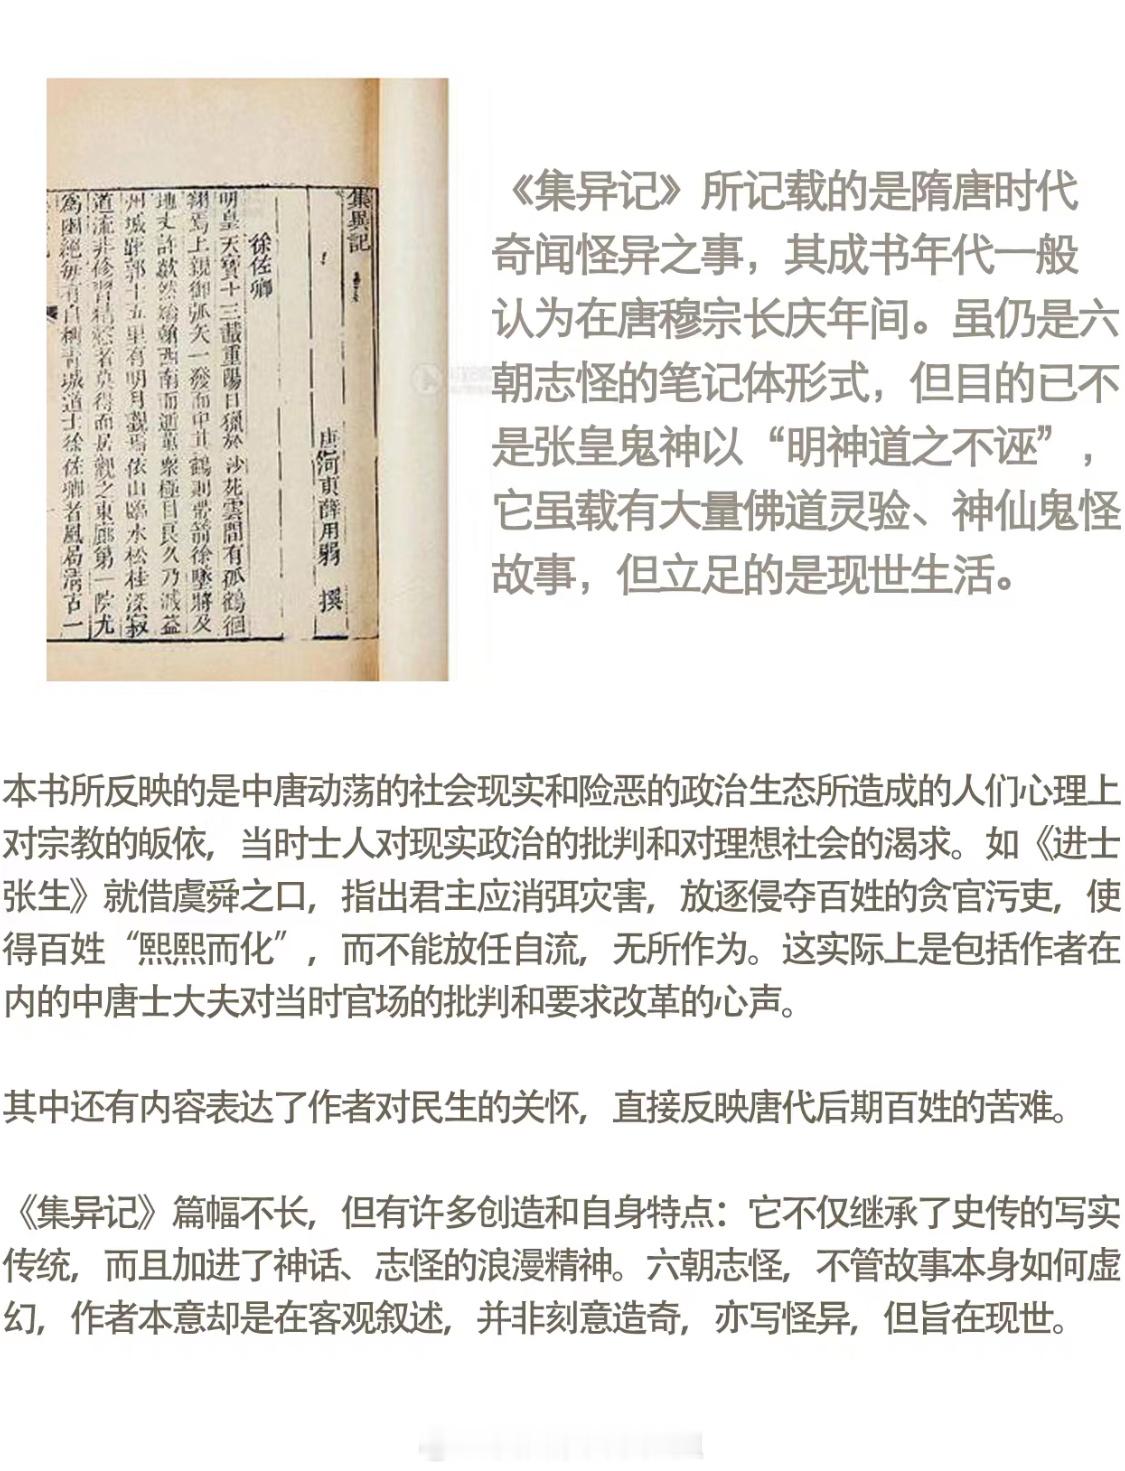 集異記
唐河東薛用弱 撰
徐佐卿
明皇天寶十三載重陽日獵於沙苑雲間有孤鶴徊
翔焉上親御弧矢一發而中其鶴則帶箭徐墜將及
地丈許歘然矯翰西南而逝萬衆極目良久乃滅益
州城距郭十五里有明月觀焉依山臨水松桂深寂
道流非修習精慤者莫得而居觀之東廊第一院尤
爲幽絕每有自稱青城道士徐佐卿者風局清古一
《集异记》所记载的是隋唐时代
奇闻怪异之事，其成书年代一般
认为在唐穆宗长庆年间。虽仍是六
朝志怪的笔记体形式，但目的已不
是张皇鬼神以“明神道之不诬”，
它虽载有大量佛道灵验、神仙鬼怪
故事，但立足的是现世生活。
本书所反映的是中唐动荡的社会现实和险恶的政治生态所造成的人们心理上
对宗教的皈依，当时士人对现实政治的批判和对理想社会的渴求。如《进士
张生》就借虞舜之口，指出君主应消弭灾害，放逐侵夺百姓的贪官污吏，使
得百姓“熙熙而化”，而不能放任自流，无所作为。这实际上是包括作者在
内的中唐士大夫对当时官场的批判和要求改革的心声。
其中还有内容表达了作者对民生的关怀，直接反映唐代后期百姓的苦难。
《集异记》篇幅不长，但有许多创造和自身特点：它不仅继承了史传的写实
传统，而且加进了神话、志怪的浪漫精神。六朝志怪，不管故事本身如何虚
幻，作者本意却是在客观叙述，并非刻意造奇，亦写怪异，但旨在现世。